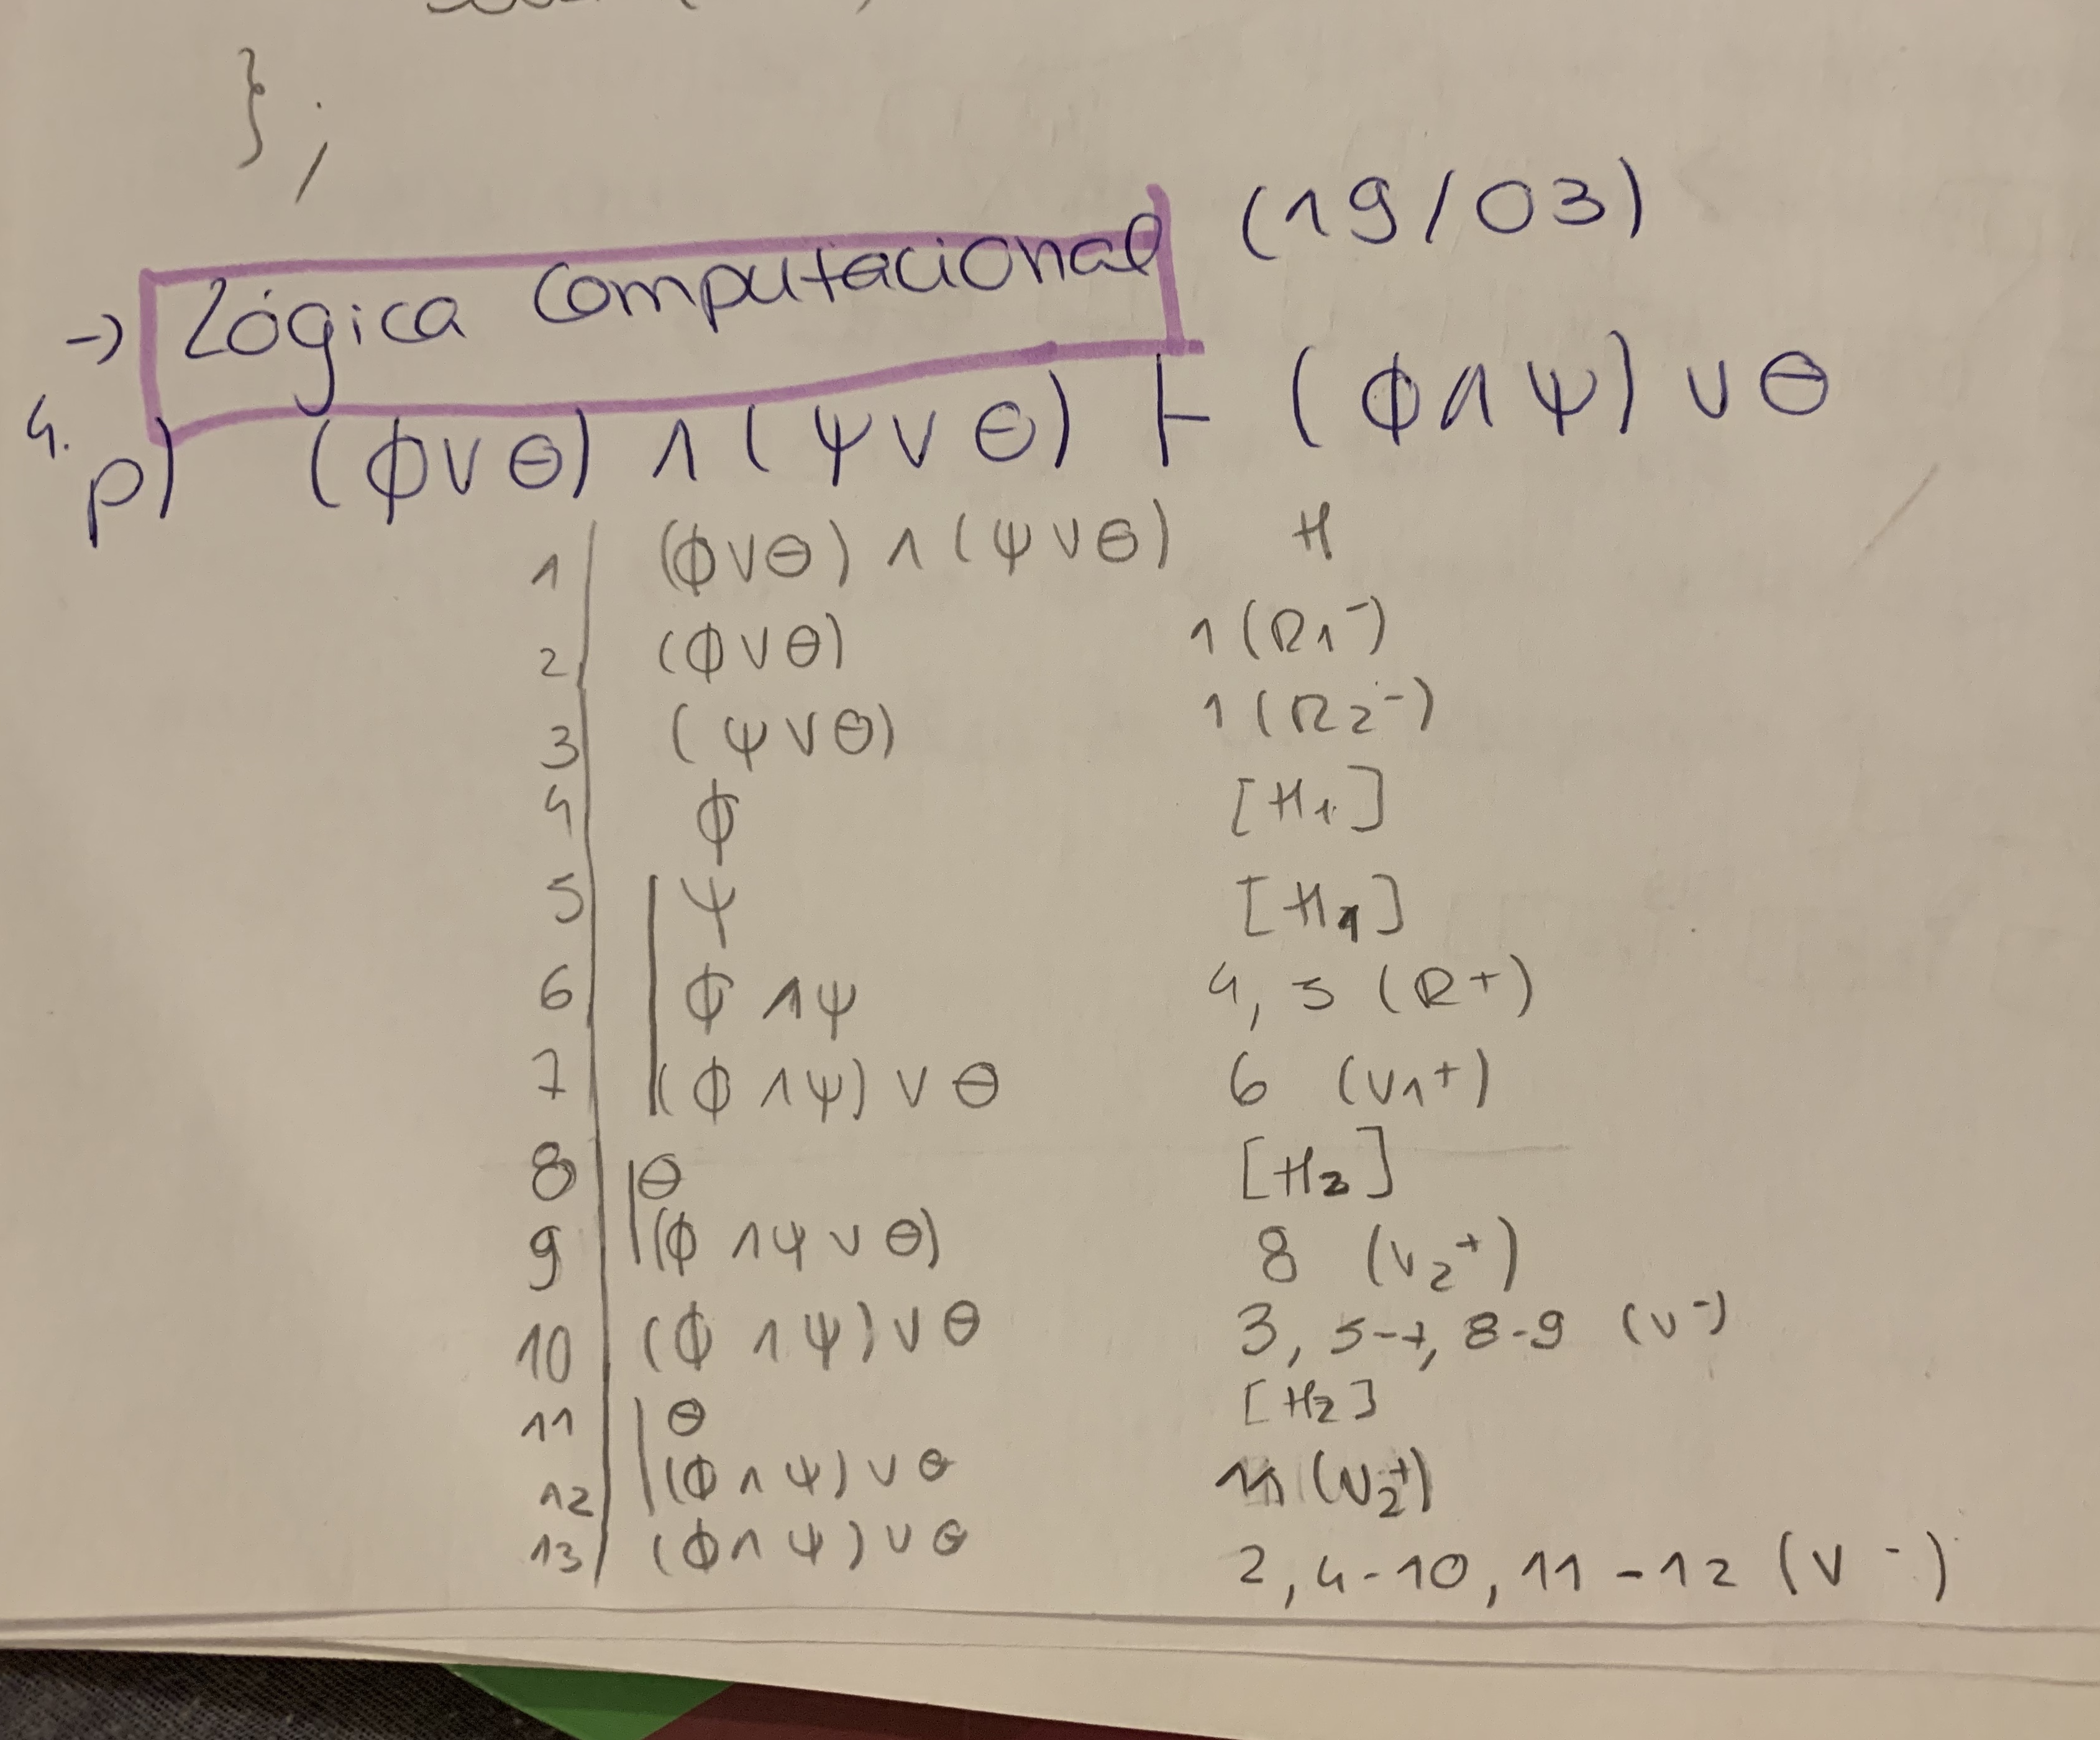 };
→ Lógica Computacional (19/03)
4.
p) (ϕ∨θ) ∧ (ψ∨θ) ⊢ (ϕ∧ψ) ∨ θ
1 (ϕ∨θ) ∧ (ψ∨θ) H
2 (ϕ∨θ) 1 (R1⁻)
3 (ψ∨θ) 1 (R2⁻)
4 ϕ [H1]
5 ψ [H1]
6 ϕ ∧ψ 4, 5 (R+)
7 (ϕ ∧ψ) ∨ θ 6 (∨1+)
8 θ [H2]
9 (ϕ ∧ψ ∨ θ) 8 (∨2+)
10 (ϕ ∧ψ) ∨ θ 3, 5-7, 8-9 (∨-)
11 θ [H2]
12 (ϕ ∧ ψ) ∨ θ 11 (∨2+)
13 (ϕ∧ ψ) ∨ θ 2, 4-10, 11-12 (∨-)